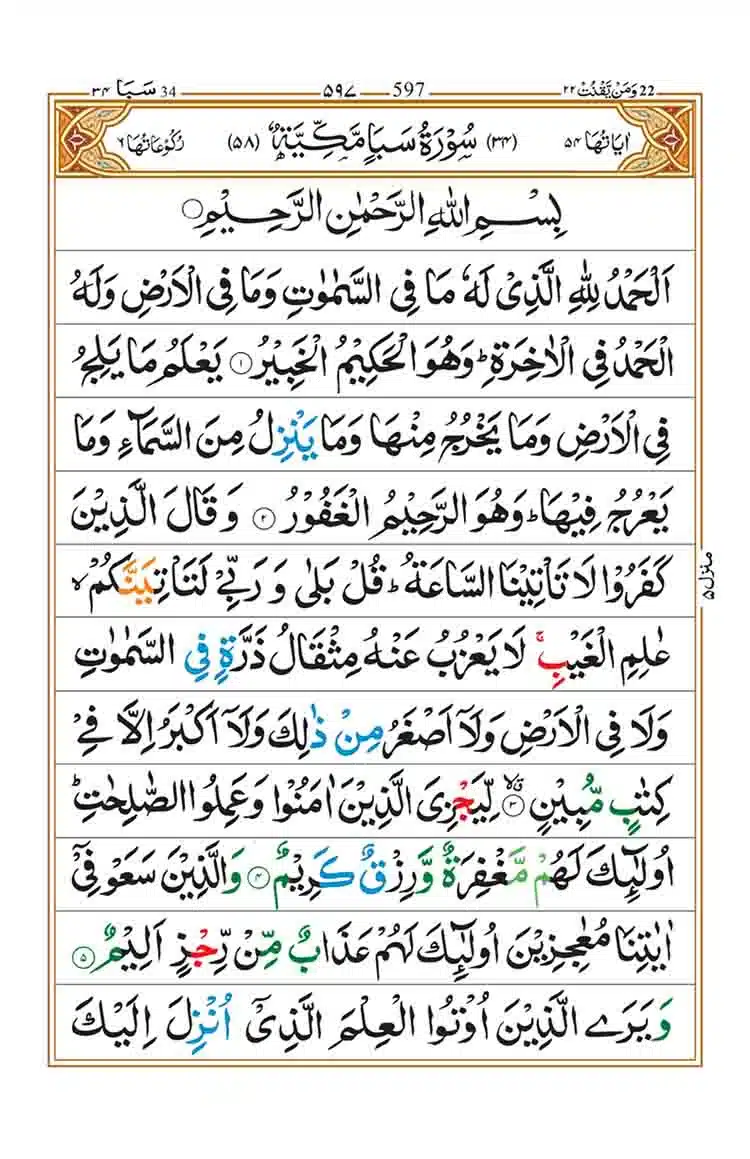 22 وَمَنْ يَّقْنُتْ ٢٢ 597 ۵۹۷ 34 سَبَا ۳۴
اٰیَاتُهَا ۵۴ (۳۴) سُوْرَةُ سَبَاٍ مَّكِّیَّةٌ (۵۸) رُكُوْعَاتُهَا ۶
بِسْمِ اللّٰهِ الرَّحْمٰنِ الرَّحِیْمِ
اَلْحَمْدُ لِلّٰهِ الَّذِیْ لَهٗ مَا فِی السَّمٰوٰتِ وَمَا فِی الْاَرْضِ وَلَهُ
الْحَمْدُ فِی الْاٰخِرَةِ ؕ وَهُوَ الْحَكِیْمُ الْخَبِیْرُ ۱ یَعْلَمُ مَا یَلِجُ
فِی الْاَرْضِ وَمَا یَخْرُجُ مِنْهَا وَمَا یَنْزِلُ مِنَ السَّمَآءِ وَمَا
یَعْرُجُ فِیْهَا ؕ وَهُوَ الرَّحِیْمُ الْغَفُوْرُ ۲ وَقَالَ الَّذِیْنَ
كَفَرُوْا لَا تَاْتِیْنَا السَّاعَةُ ؕ قُلْ بَلٰی وَرَبِّیْ لَتَاْتِیَنَّكُمْ ۙ
عٰلِمِ الْغَیْبِ ۚ لَا یَعْزُبُ عَنْهُ مِثْقَالُ ذَرَّةٍ فِی السَّمٰوٰتِ
وَلَا فِی الْاَرْضِ وَلَاۤ اَصْغَرُ مِنْ ذٰلِكَ وَلَاۤ اَكْبَرُ اِلَّا فِیْ
كِتٰبٍ مُّبِیْنٍ ۳ ۙق لِّیَجْزِیَ الَّذِیْنَ اٰمَنُوْا وَعَمِلُوا الصّٰلِحٰتِ ؕ
اُولٰٓئِكَ لَهُمْ مَّغْفِرَةٌ وَّرِزْقٌ كَرِیْمٌ ۴ وَالَّذِیْنَ سَعَوْ فِیْۤ
اٰیٰتِنَا مُعٰجِزِیْنَ اُولٰٓئِكَ لَهُمْ عَذَابٌ مِّنْ رِّجْزٍ اَلِیْمٌ ۵
وَیَرَی الَّذِیْنَ اُوْتُوا الْعِلْمَ الَّذِیْۤ اُنْزِلَ اِلَیْكَ
منزل ۵